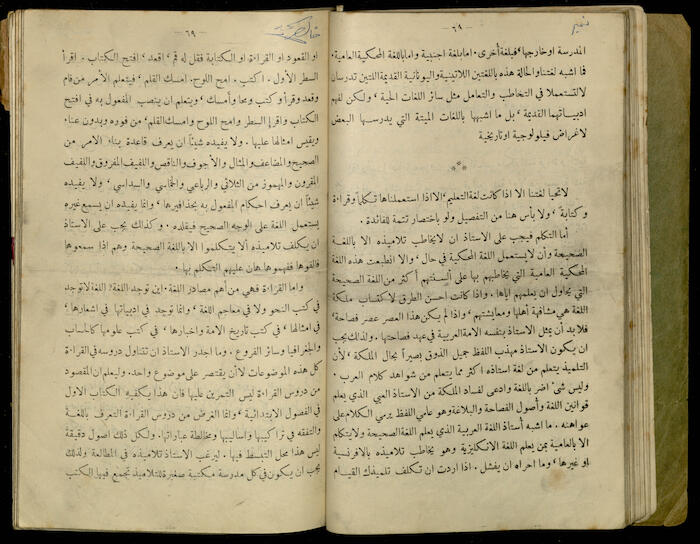 ـ ٦٨ ـ
المدرسة او خارجها، فبلغة أخرى. اما بلغة اجنبية واما باللغة المحكية العامية.
فما اشبه لغتنا والحالة هذه باللغتين اللاتينية واليونانية القديمة اللتين تدرسان
لالتستعملا في التخاطب والتعامل مثل سائر اللغات الحية، ولكن لفهم
ادبياتهما القديمة، بل ما اشبهها باللغات الميتة التي يدرسها البعض
لاغراض فيلولوجية او تاريخية
***
لا تحيا لغتنا الا اذا كانت لغة التعليم، الا اذا استعملناها تكلماً وقراءة
وكتابةً، ولا بأس هنا من التفصيل ولو باختصار تتمة للفائدة.
أما التكلم فيجب على الاستاذ ان لا يخاطب تلاميذه الا باللغة
الصحيحة وأن لا يستعمل اللغة المحكية في حال، والا انطبعت هذه اللغة
المحكية العامية التي يخاطبهم بها على ألسنتهم أكثر من اللغة الصحيحة
التي يحاول ان يعلمهم اياها. واذا كانت احسن الطرق لاكتساب ملكة
اللغة هي مشافهة أهلها ومعايشتهم، واذا لم يكن هذا العصر عصر فصاحة،
فلا بد أن يمثل الاستاذ بنفسه الامة العربية في عهد فصاحتها. ولذلك يجب
ان يكون الاستاذ مهذب اللفظ جميل الذوق بصيراً بجال الملكة، لأن
التلميذ يتعلم من لغة استاذه اكثر مما يتعلم من شواهد كلام العرب.
وليس شيء اضر باللغة وادعى لفساد الملكة من الاستاذ العيي الذي يعلم
قوانين اللغة وأصول الفصاحة والبلاغة وهو عامي اللفظ يرمي الكلام على
عواهنه. ما اشبه أستاذ اللغة العربية الذي يعلم اللغة الصحيحة ولا يتكلم
الا بالعامية بمن يعلم اللغة الانكليزية وهو يخاطب تلاميذه بالافرنسية
او غيرها، وما احراه ان يفشل. اذا اردت ان تكلف تلميذك القيام
ـ ٦٩ ـ
او القعود او القراءة او الكتابة فقل له قم، اقعد، افتح الكتاب. اقرأ
السطر الأول. اكتب. امح اللوح. امسك القلم، فيتعلم الأمر من قام
وقعد وقرأ وكتب ومحا وأمسك، ويتعلم ان ينصب المفعول به في افتح
الكتاب واقرإ السطر وامح اللوح وامسك القلم، من فوره وبدون عناء
ويقيس امثالها عليها. ولا يفيده شيئاً ان يعرف قاعدة بناء الامر من
الصحيح والمضاعف والمثال والأجوف والناقص واللفيف المفروق واللفيف
المقرون والمهموز من الثلاثي والرباعي والخماسي والسداسي، ولا يفيده
شيئاً ان يعرف احكام المفعول به بحذافيرها، وانما يفيده ان يسمع غيره
يستعمل اللغة على الوجه الصحيح فيقلده. وكذلك يجب على الاستاذ
ان يكلف تلاميذه ألا يتكلموا الا باللغة الصحيحة وهم اذا سمعوها
فالفوها ففهموها هان عليهم التكلم بها.
واما القراءة فهي من أهم مصادر اللغة. اين توجد اللغة؟ اللغة لا توجد
في كتب النحو ولا في معاجم اللغة، وانما توجد في ادبياتها في اشعارها،
في امثالها، في كتب تاريخ الامة واخبارها، في كتب علومها كالحساب
والجغرافيا وسائر الفروع. وما اجدر الاستاذ ان تتناول دروسه في القراءة
كل هذه الموضوعات لا أن يقتصر على موضوع واحد. وليعلم ان المقصود
من دروس القراءة ليس التمرين عليها فان هذا يكفيه الكتاب الاول
في الفصول الابتدائية، وانما الغرض من دروس القراءة التعرف باللغة
والتفقه في تراكيبها واساليبها ومخالطة عباراتها. ولكل ذلك اصول دقيقة
ليس هذا محل التبسط فيها. ليرغب الاستاذ تلاميذه في المطالعة ولذلك
يجب ان يكون في كل مدرسة مكتبة صغيرة للتلاميذ تجمع فيها الكتب